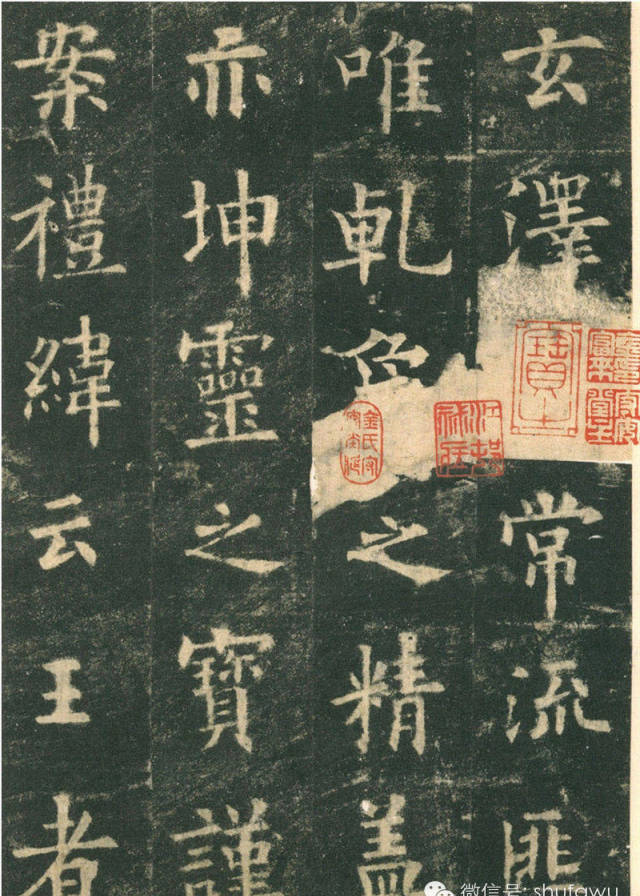 玄澤常流匪
唯乹象之精蓋
亦坤靈之寶謹
案禮緯云王者
微信号: shufawu